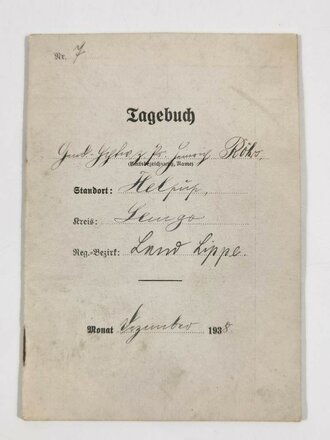 Nr. 7
Tagebuch
Gend. Heinrich Röhr.
(Amtsbezeichnung, Name)
Standort: Helpup,
Kreis: Lemgo
Reg.-Bezirk: Land Lippe.
Monat Dezember 1938.